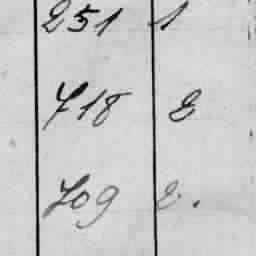 251 1
718 2
709 2.